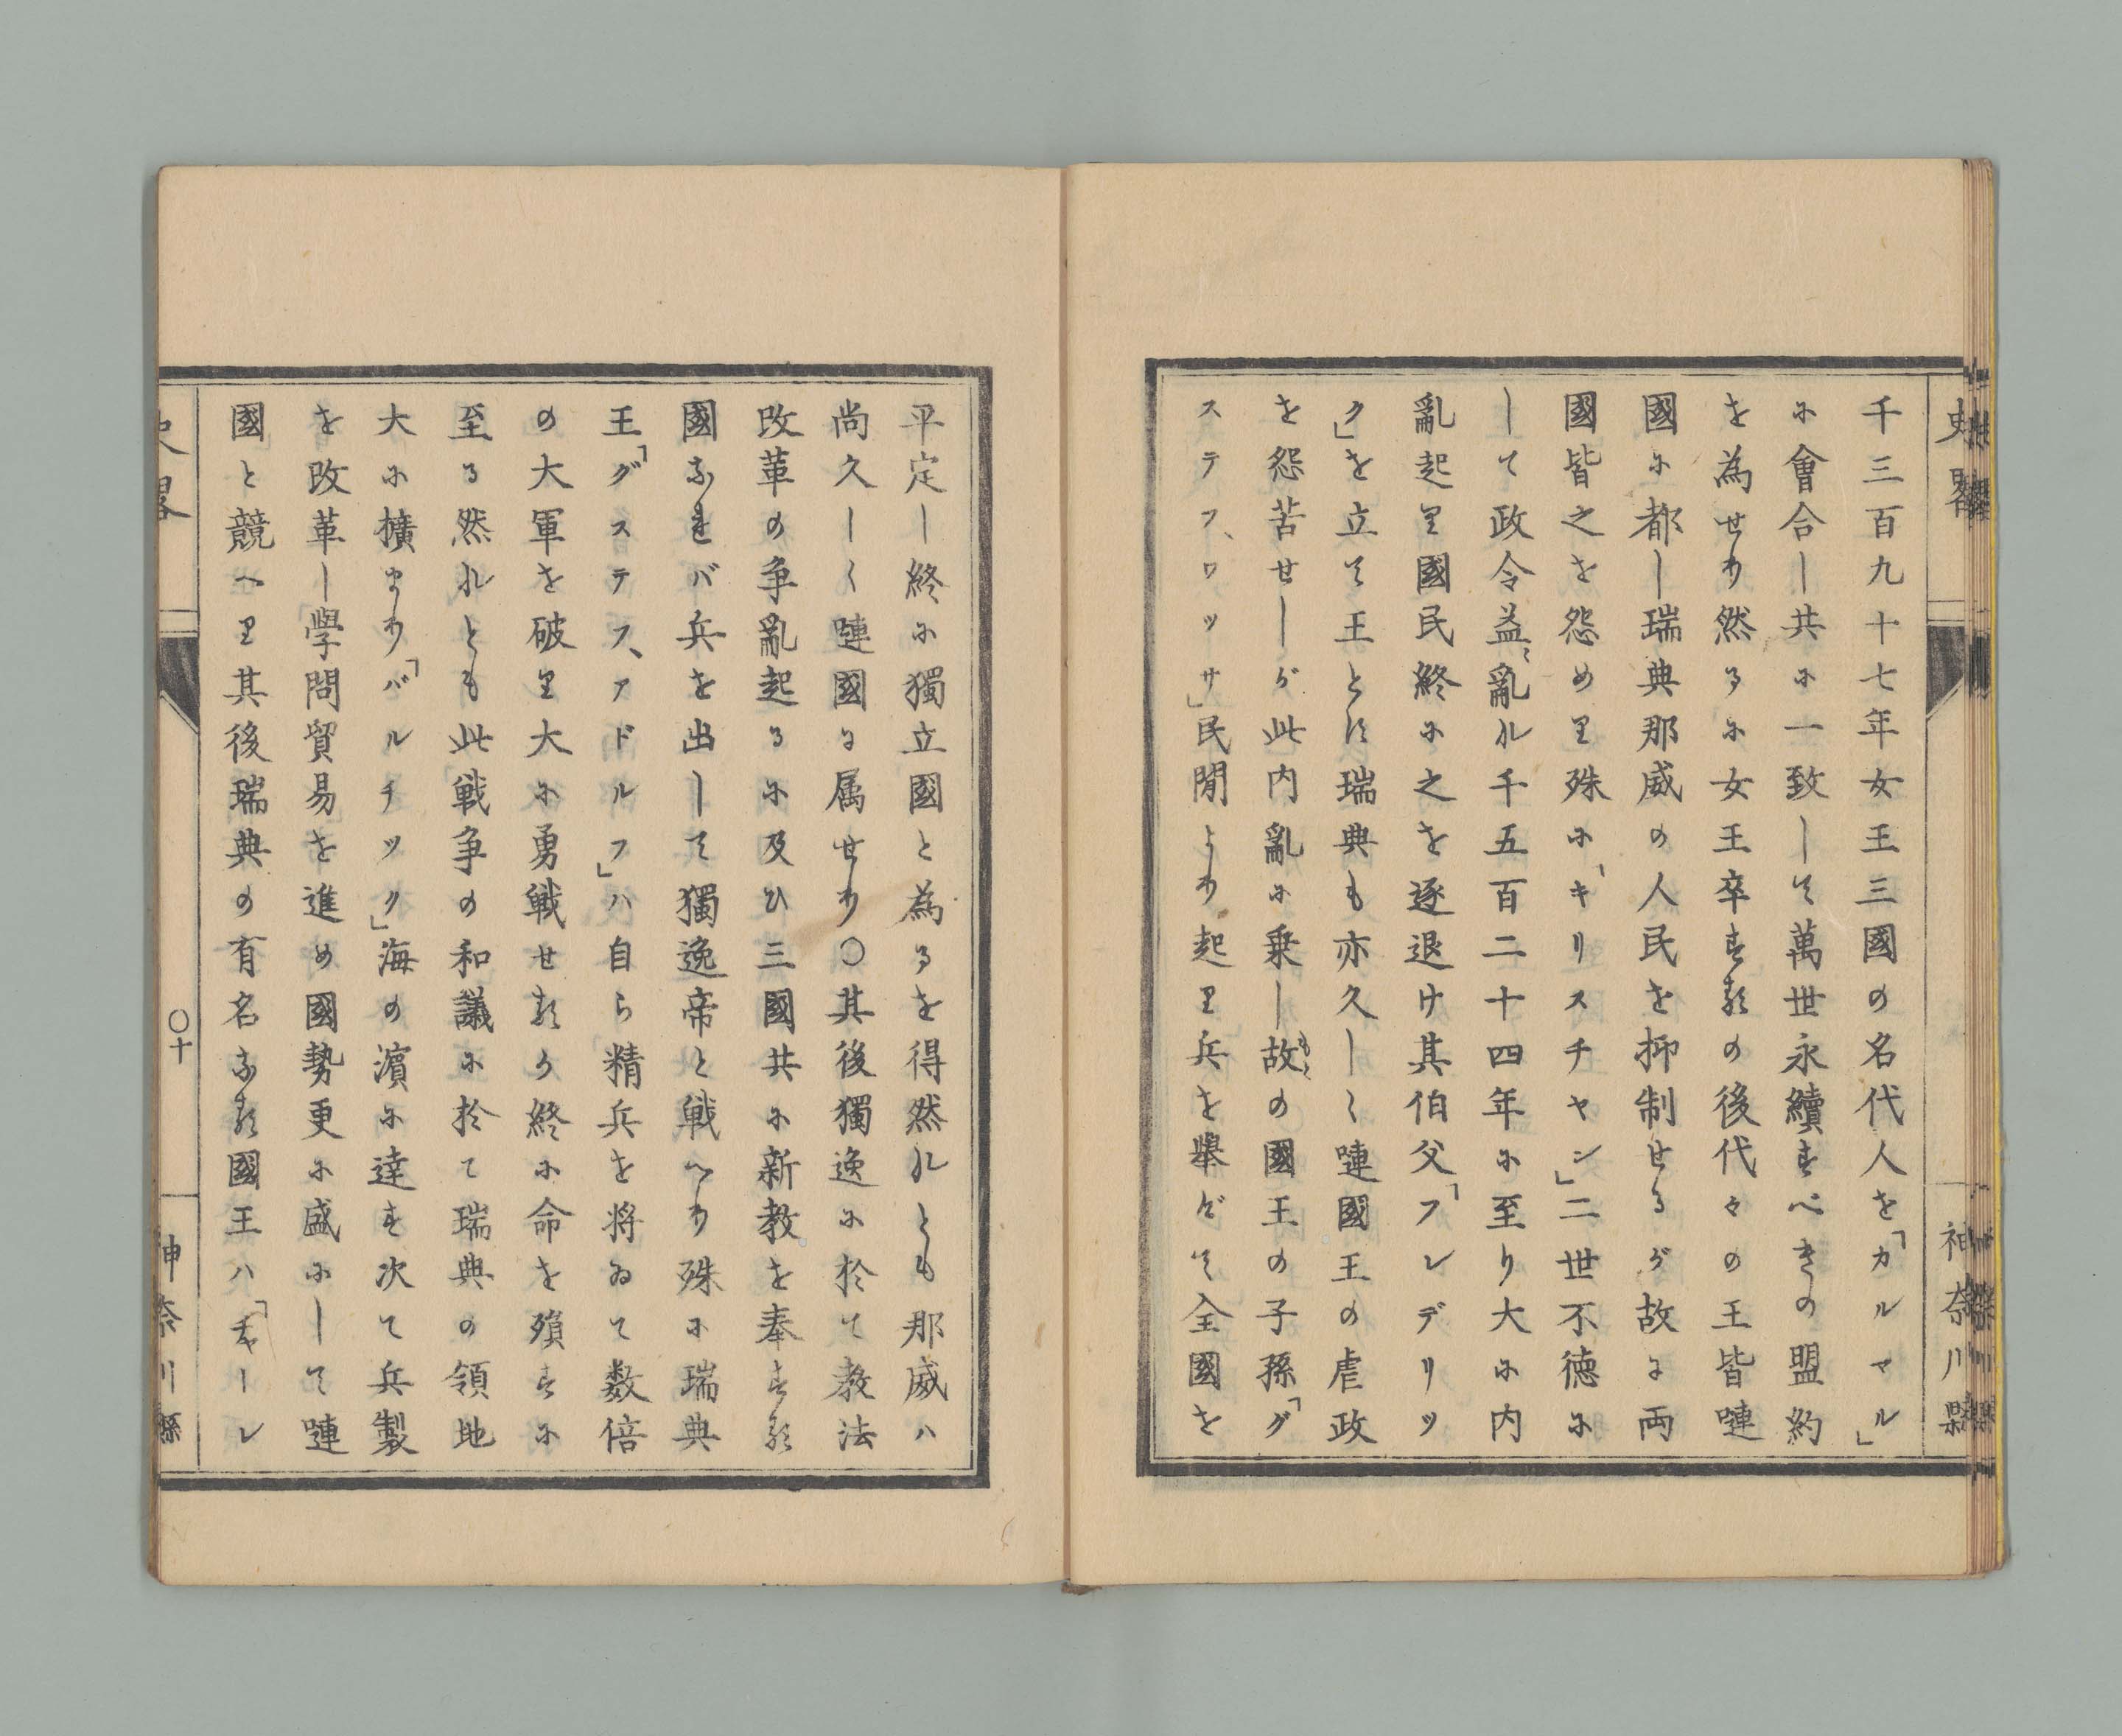 史畧
神奈川縣
千三百九十七年女王三國の名代人を「カルマル」
に會合し共に一致して萬世永續すべきの盟約
を為せり然るに女王卒するの後代々の王皆嗹
國に都し瑞典那威の人民を抑制せるが故に両
國皆之を怨めり殊に「キリスチヤン」二世不徳に
して政令益〻亂ル千五百二十四年に至り大に内
亂起り國民終に之を逐退け其伯父「フレデリツ
ク」を立て王とす瑞典も亦久しく嗹國王の虐政
を怨苦せしが此内亂に乗し故もとの國王の子孫「グ
スタフ、ワツサ」民間より起り兵を舉げて全國を
平定し終に獨立國と為るを得然ルとも那威ハ
尚久しく嗹國に属せり〇其後獨逸に於て教法
改革の争亂起るに及ひ三國共に新教を奉する
國なれバ兵を出して獨逸帝と戦へり殊に瑞典
王「グスタフ、アドルフ」ハ自ら精兵を将ゐて数倍
の大軍を破り大に勇戦せるか終に命を殞すに
至る然れとも此戦争の和議に於て瑞典の領地
大に擴まり「バルチツク」海の濵に達す次て兵製
を改革し學問貿易を進め國勢更に盛にして嗹
國と競へり其後瑞典の有名なる國王ハ「チヤーレ
史畧
〇十
神奈川縣